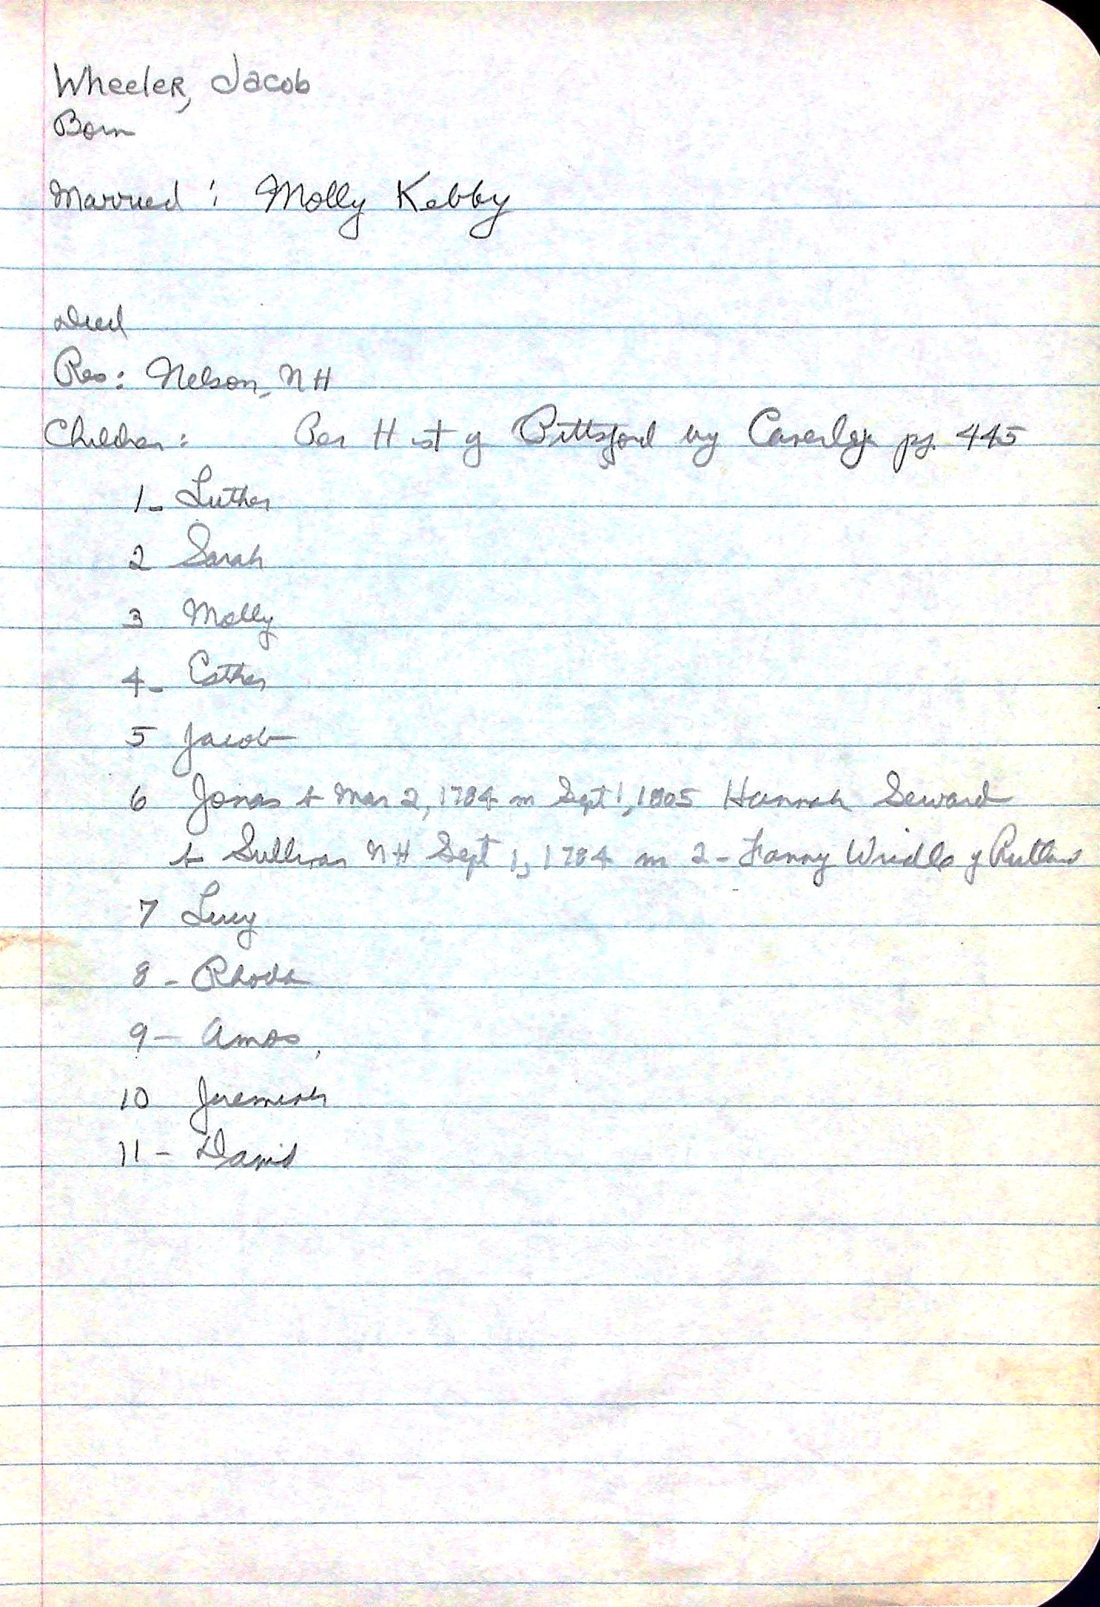 Wheeler, Jacob
Born
Married : Molly Kebby
Died
Res: Nelson, NH
Children: Per Hist of Pittsford by Caverly pg. 445
1- Luther
2 Sarah
3 Molly
4- Esther
5 Jacob
6 Jonas b Mar 2, 1784 m Sept 1, 1805 Hannah Seward
b Sullivan NH Sept 1, 1784 m 2- Fanny of Rutland
7 Lucy
8 - Rhoda
9 - Amos
10 Jeremiah
11 - David